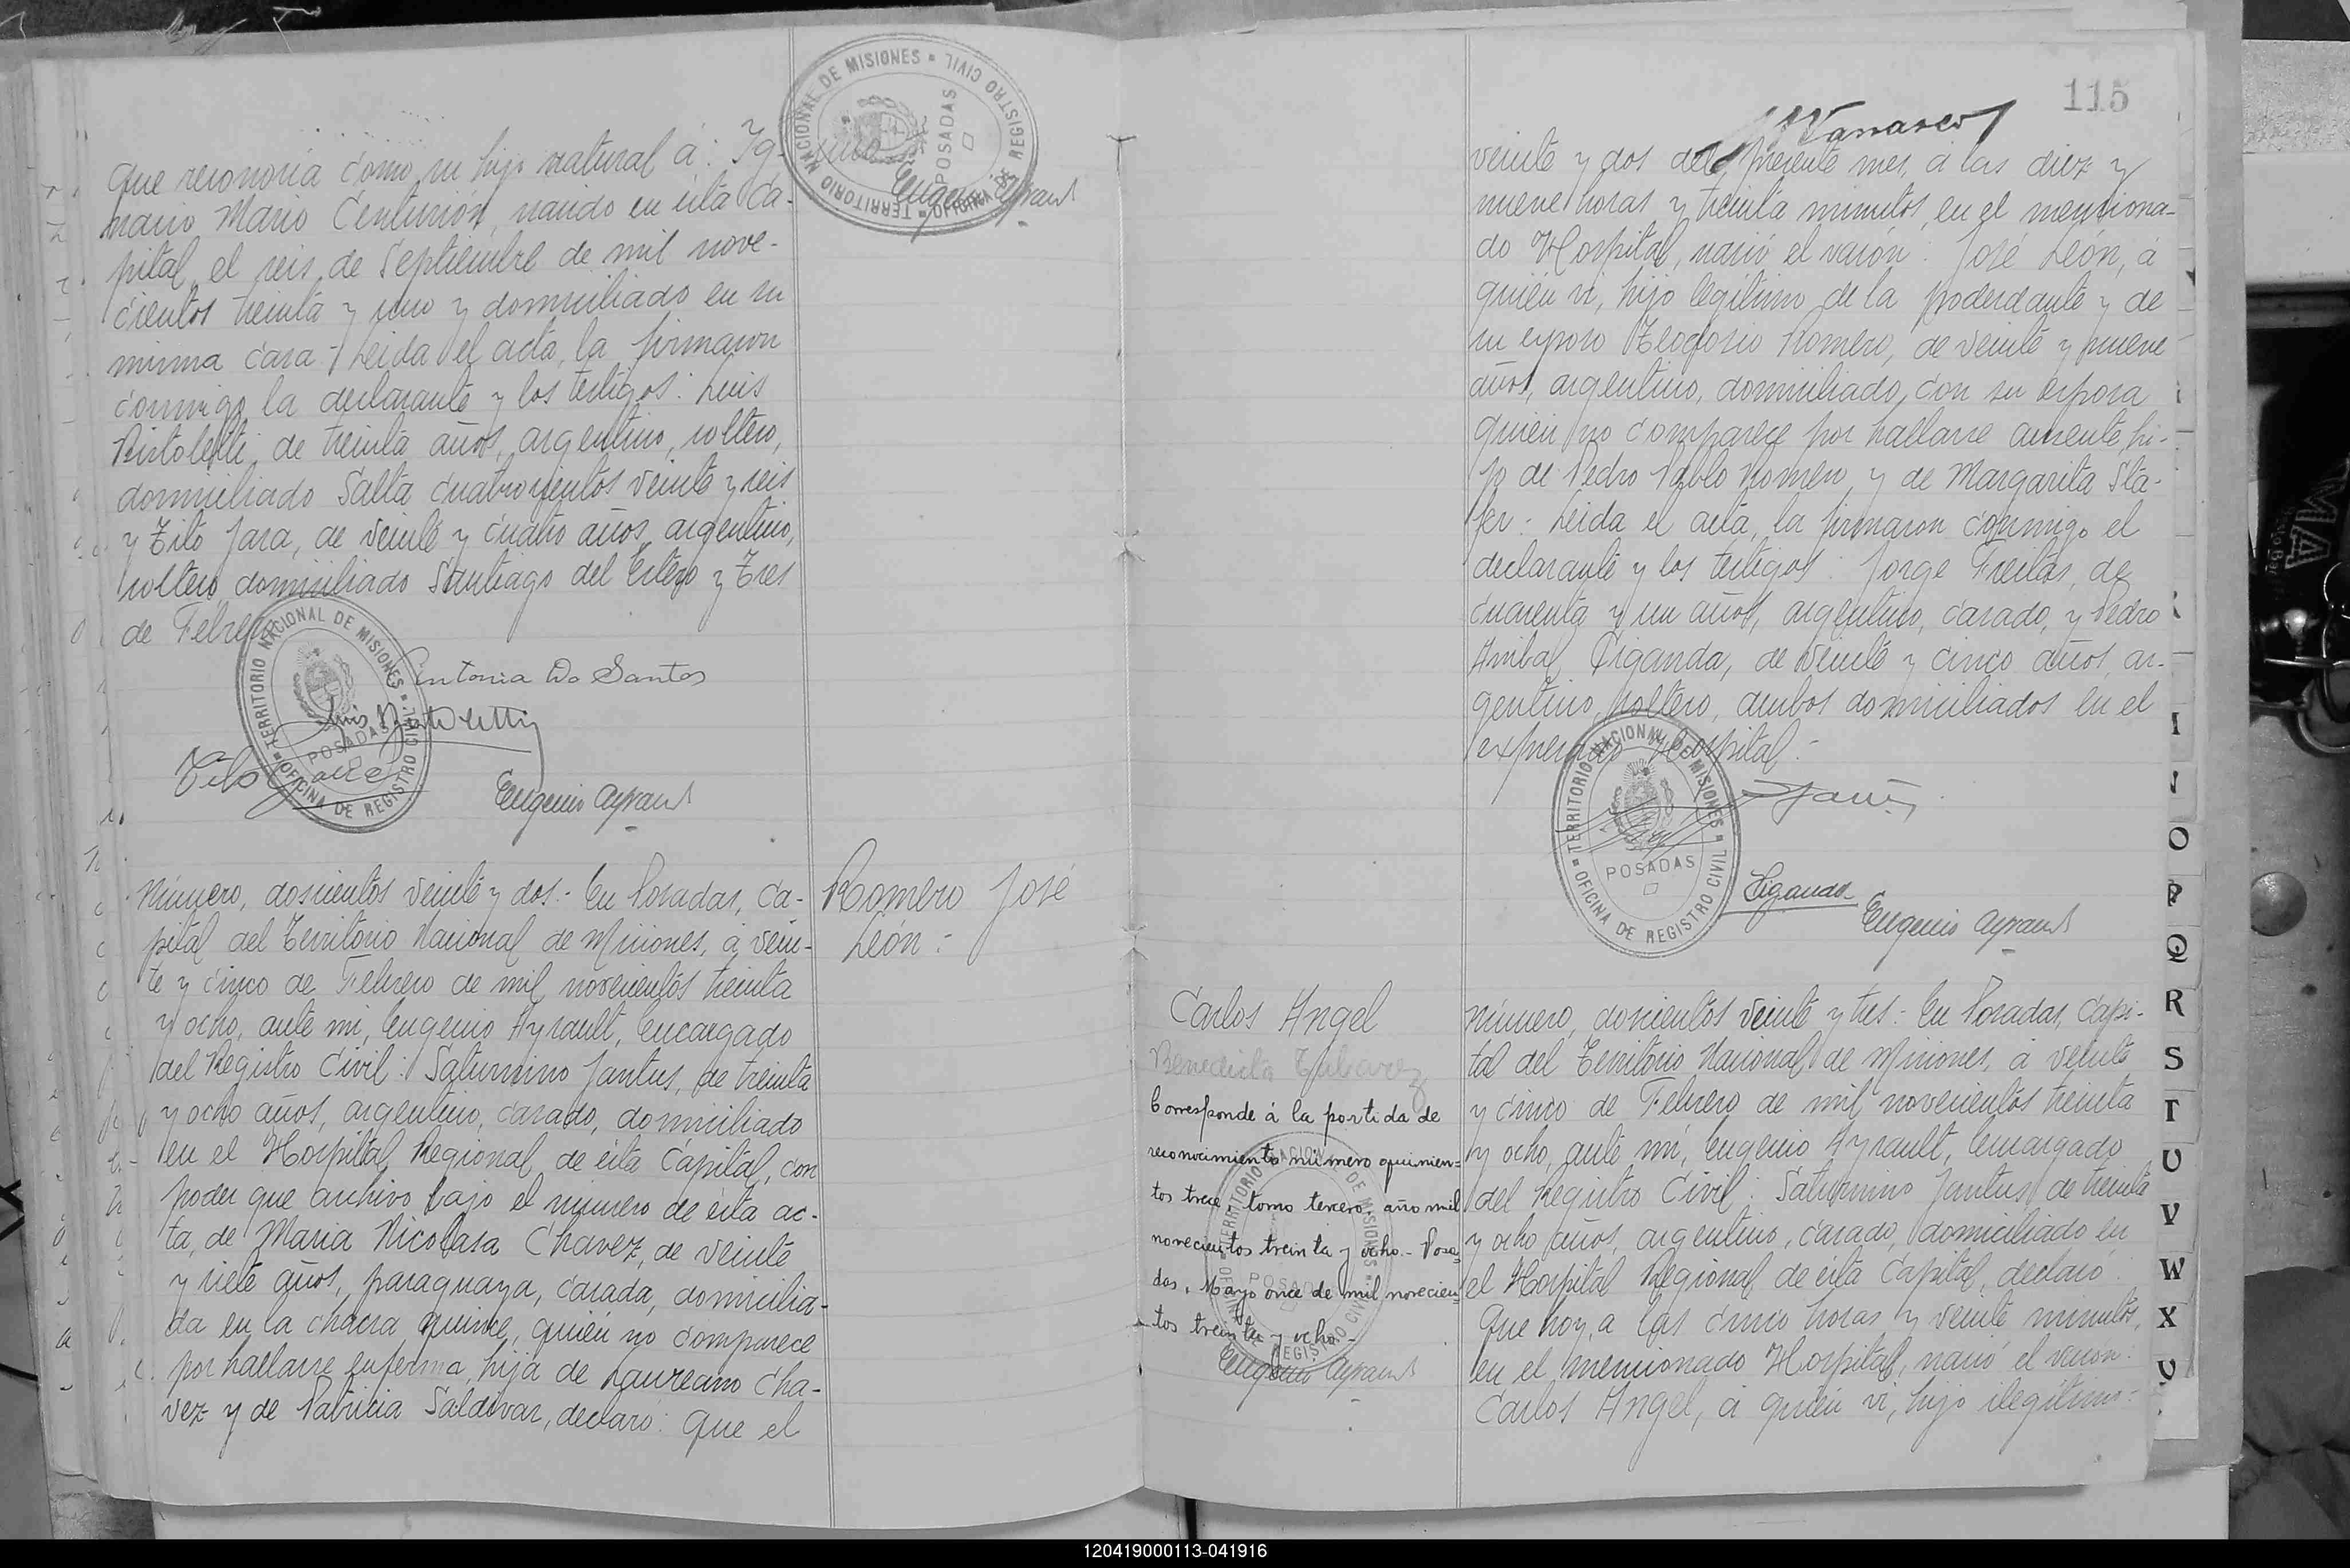 que reconocía como su hijo natural á: Ig-
nacio Mario Centurión, nacido en ésta Ca-
pital, el seis de Septiembre de mil nove-
cientos treinta y uno y domiciliado en su
misma casa.- Leida el acta, la firmaron
conmigo la declarante y los testigos: Luis
Bistoletti, de treinta años, argentino, soltero,
domiciliado Salta cuatrocientos veinte y seis
y Tito Jara, de veinte y cuatro años, argentino,
soltero, domiciliado Santiago del Estero y Tres
de Febrero
Antonia Do Santos
Luis Bistoletti
Tito Jara
Eugenio Ayrault
TERRITORIO NACIONAL DE MISIONES
OFICINA DE REGISTRO CIVIL
POSADAS
TERRITORIO NACIONAL DE MISIONES
OFICINA DE REGISTRO CIVIL
POSADAS
Eugenio Ayrault
Número, doscientos veinte y dos.- En Posadas, Ca-
pital del Territorio Nacional de Misiones, á vein-
te y cinco de Febrero de mil novecientos treinta
y ocho, ante mi, Eugenio Ayrault, Encargado
del Registro Civil: Saturnino Jantus, de treinta
y ocho años, argentino, casado, domiciliado
en el Hospital Regional de ésta Capital, con
poder que archivo bajo el número de ésta ac-
ta, de Maria Nicolasa Chavez, de veinte
y siete años, paraguaya, casada, domicilia-
da en la chacra quince, quien no comparece
por hallarse enferma, hija de Laureano Cha-
vez y de Patricia Saldivar, declaró: Que el
Romero José
León.-
115
veinte y dos del presente mes, á las diez y
nueve horas y treinta minutos, en el menciona-
do Hospital, nació el varón: José León, á
quién vi, hijo legítimo de la poderdante y de
su esposo Teodosio Romero, de veinte y nueve
años, argentino, domiciliado, con su esposa
quien no comparece por hallarse ausente, hi-
jo de Pedro Pablo Romero y de Margarita Sta-
fer.- Leida el acta, la firmaron conmigo el
declarante y los testigos: Jorge Freitas, de
cuarenta y un años, argentino, casado, y Pedro
Anibal Ciganda, de veinte y cinco años, ar-
gentino, soltero, ambos domiciliados en el
expresado Hospital.-
TERRITORIO NACIONAL DE MISIONES
OFICINA DE REGISTRO CIVIL
POSADAS
Ciganda
Eugenio Ayrault
Carlos Angel
Benedicta
Corresponde á la partida de
reconocimiento número quinien=
tos trece, tomo tercero, año mil
novecientos treinta y ocho.- Posa=
das, Mayo once de mil novecien=
tos treinta y ocho.-
Eugenio Ayrault
TERRITORIO NACIONAL DE MISIONES
POSADAS
Número, doscientos veinte y tres.- En Posadas, Capi-
tal del Territorio Nacional de Misiones, á veinte
y cinco de Febrero de mil novecientos treinta
y ocho, ante mí, Eugenio Ayrault, Encargado
del Registro Civil: Saturnino Jantus, de treinta
y ocho años, argentino, casado, domiciliado en
el Hospital Regional de ésta Capital, declaró:
Que hoy, a las cinco horas y veinte minutos,
en el mencionado Hospital, nació el varon:
Carlos Angel, á quién vi, hijo ilegítimo.-
I
N
O
P
Q
R
S
T
U
V
W
X
120419000113-041916